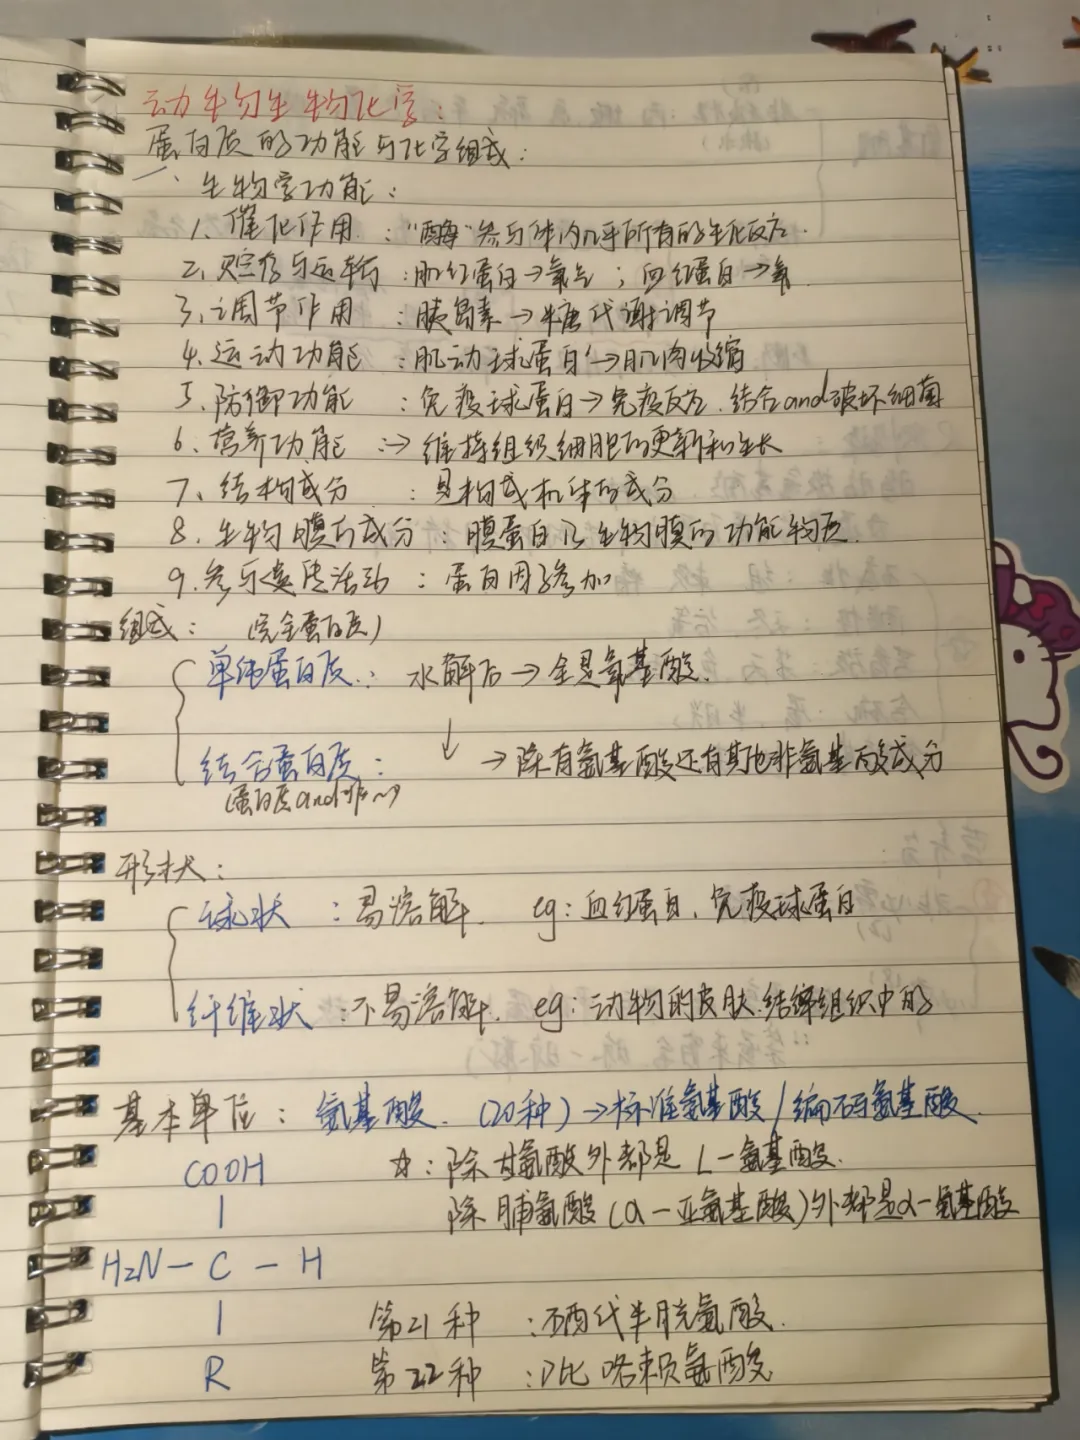 动物生物化学:
蛋白质的功能与化学组成:
一、生物学功能:
1、催化作用:“酶”参与体内几乎所有的生化反应.
2、贮存与运输:肌红蛋白→氧气;血红蛋白→氧
3、调节作用:胰岛素→糖代谢调节
4、运动功能:肌动球蛋白→肌肉收缩
5、防御功能:免疫球蛋白→免疫反应.结合and破坏细菌
6、营养功能:→维持组织细胞的更新和生长
7、结构成分:是构成机体的成分
8、生物膜的成分:膜蛋白 生物膜的功能物质.
9、参与遗传活动:蛋白因子参加
组成:(完全蛋白质)
单纯蛋白质:水解后→全是氨基酸.
↓
结合蛋白质:→除有氨基酸还有其他非氨基酸成分
(蛋白质and非~)
形状:
球状:易溶解. eg:血红蛋白、免疫球蛋白
纤维状:不易溶解. eg:动物的皮肤.结缔组织中的
基本单位:氨基酸.(20种)→标准氨基酸/编码氨基酸.
COOH ☆:除甘氨酸外都是L-氨基酸.
| 除脯氨酸(α-亚氨基酸)外都是α-氨基酸
H₂N-C-H
| 第21种:硒代半胱氨酸.
R 第22种:吡咯赖氨酸